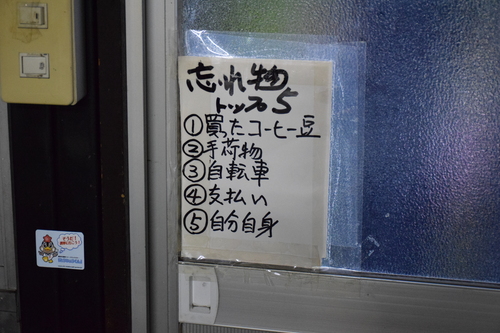 忘れ物
トップ5
①買ったコーヒー豆
②手荷物
③自転車
④支払い
⑤自分自身